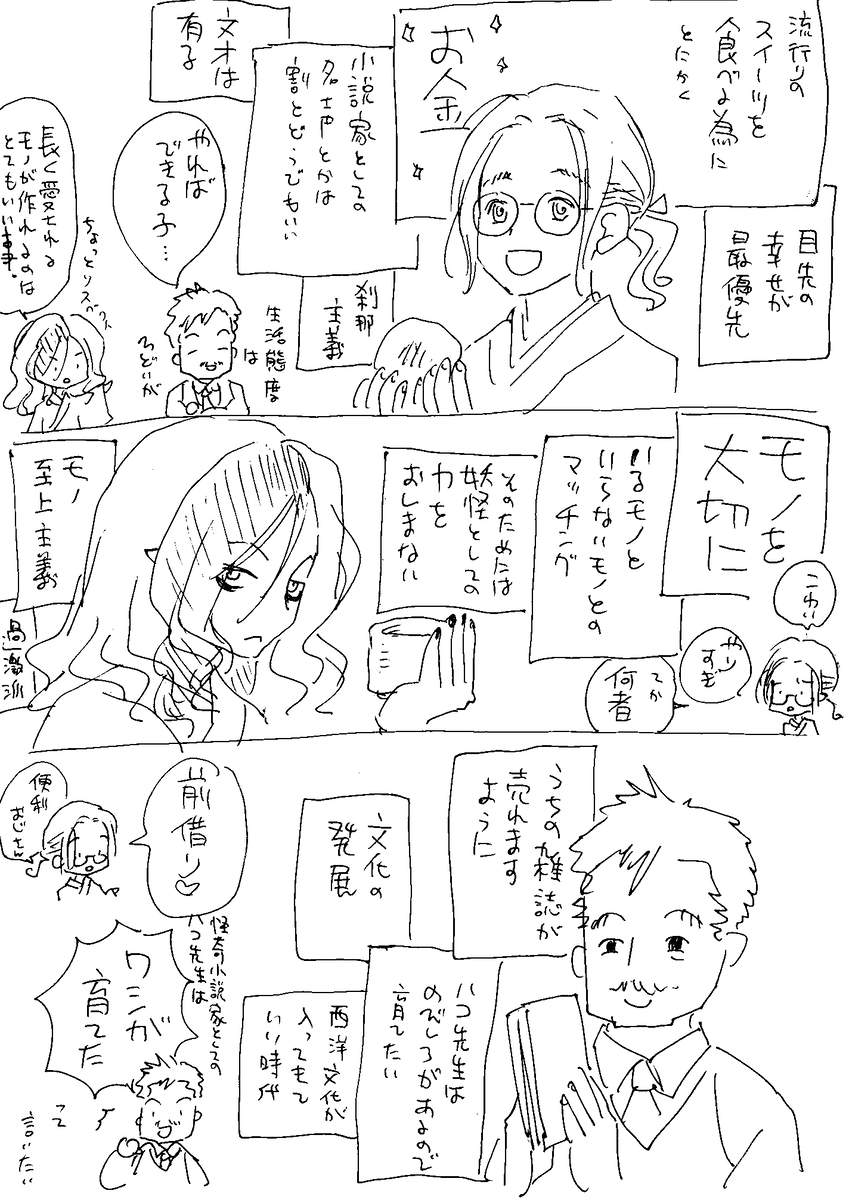 流行りの
スイーツを
食べる為に
とにかく
お金
目先の
幸せが
最優先
小説家としての
名声とかは
割とどうでもいい
刹那
主義
文才は
有る
やれば
できる子…
生活態度
は
ひどいが
長く愛される
モノが作れるのは
とてもいい事。
ちょっとリスペクト
モノを
大切に
いるモノと
いらないモノとの
マッチング
そのためには
妖怪としての
力を
おしまない
モノ
至上主義
過激派
こわい
やり
すぎ
てか
何者
うちの雑誌が
売れます
ように
文化の
発展
ハコ先生は
のびしろがあるので
育てたい
西洋文化が
入ってきて
いい時代
前借り♡
便利
おじさん
怪奇小説家としての
ハコ先生は
ワシが
育てた
って
言いたい